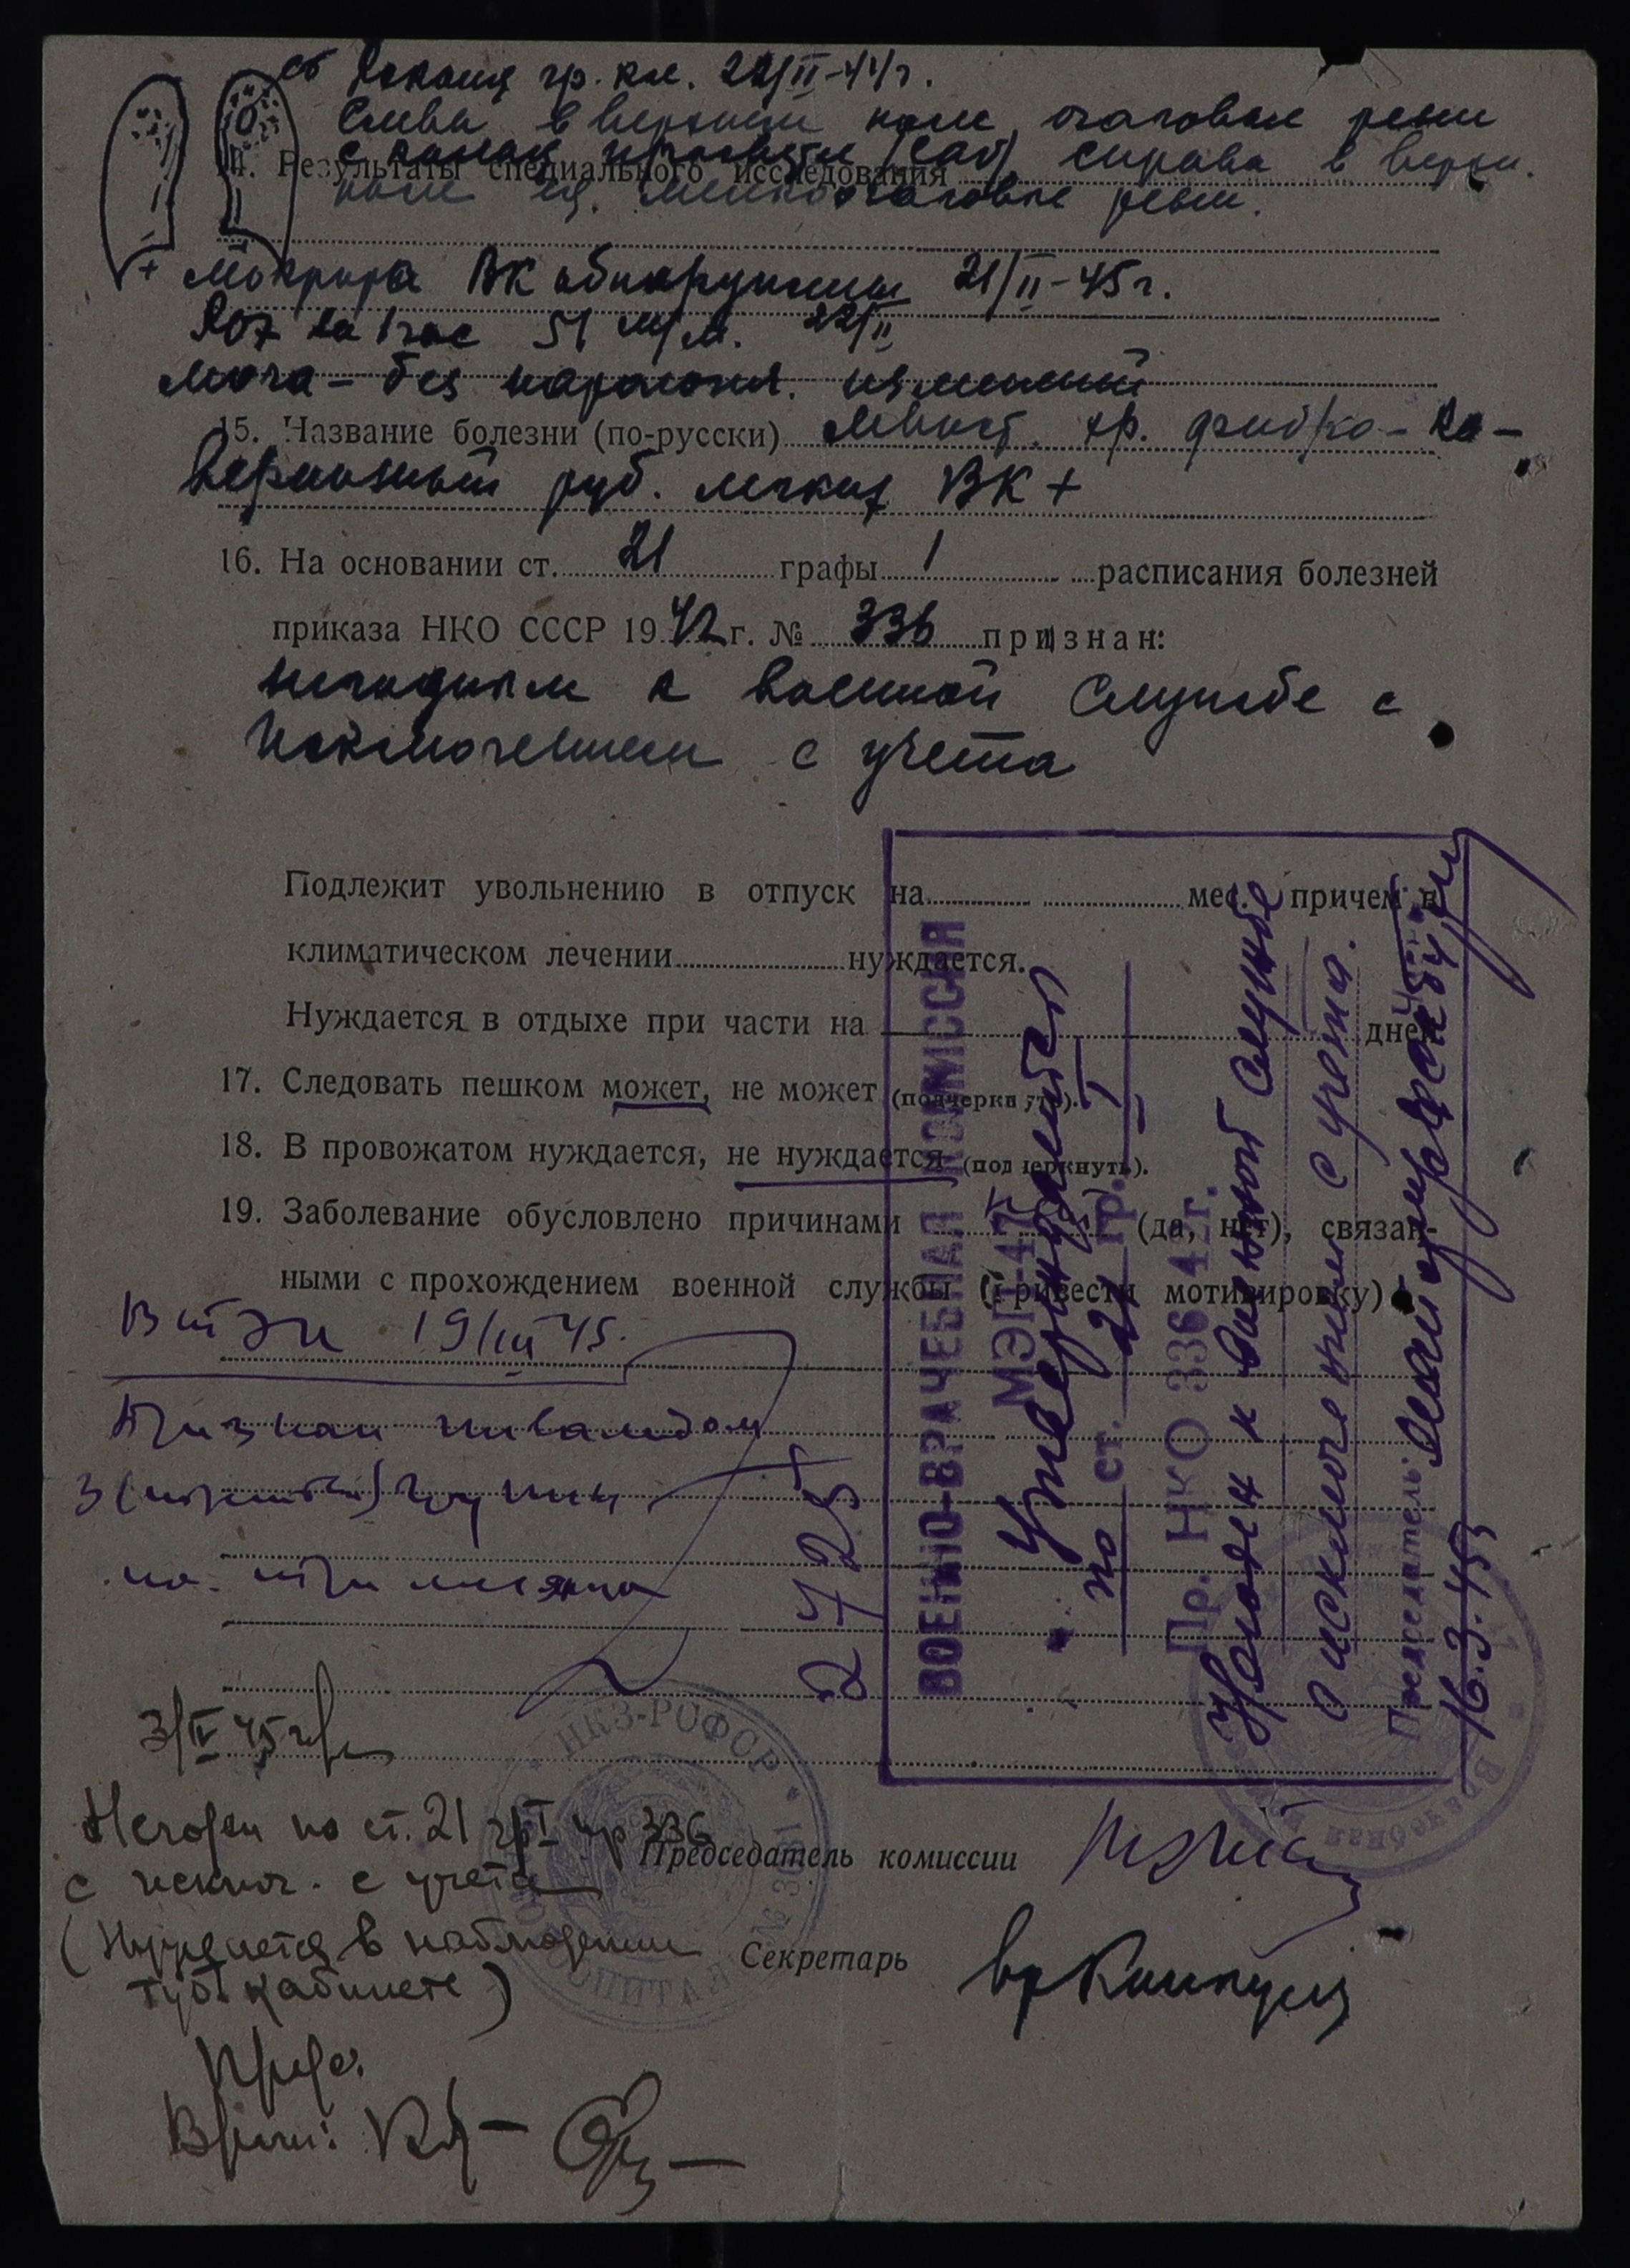 гр. кл. 22/II-44г.
Слева в верхнем поле, очаговые
14. Результаты специального исследования справа в верхн.
поле мелкоочаговые
+ Мокрота ВК обнаружены 21/II-45г.
РОЭ за 1 час 51 м/м. 22/II
Моча - без изменений
15. Название болезни (по-русски) фиброзно-ка-
вернозный туб. легких ВК +
16. На основании ст. 21 графы 1 расписания болезней
приказа НКО СССР 1942 г. № 336 признан:
негодным к военной службе с
исключением с учета
Подлежит увольнению в отпуск на мес. причем в
климатическом лечении нуждается.
Нуждается в отдыхе при части на дней
17. Следовать пешком может, не может (подчеркнуть).
18. В провожатом нуждается, не нуждается (подчеркнуть).
19. Заболевание обусловлено причинами (да, нет), связан-
ными с прохождением военной службы (привести мотивировку)
ВТЭК 19/III 45.
Признан инвалидом
3 группы
на три месяца
2425
ВОЕННО-ВРАЧЕБНАЯ КОМИССИЯ
МЭП-47
Утверждает
по ст. 21 гр. I
Пр. НКО 336 42г.
Негоден к военной службе
с исключением с учета.
Председатель:
16.3.45
НКЗ-РСФСР
ГОСПИТАЛЬ №
Врачебная
3/IV 45г
Негоден по ст. 21 гр I пр 336
с исключ. с учета
Председатель комиссии
(Нуждается в наблюдении
туб. кабинете)
Секретарь
вр
Пред.
Врачи: